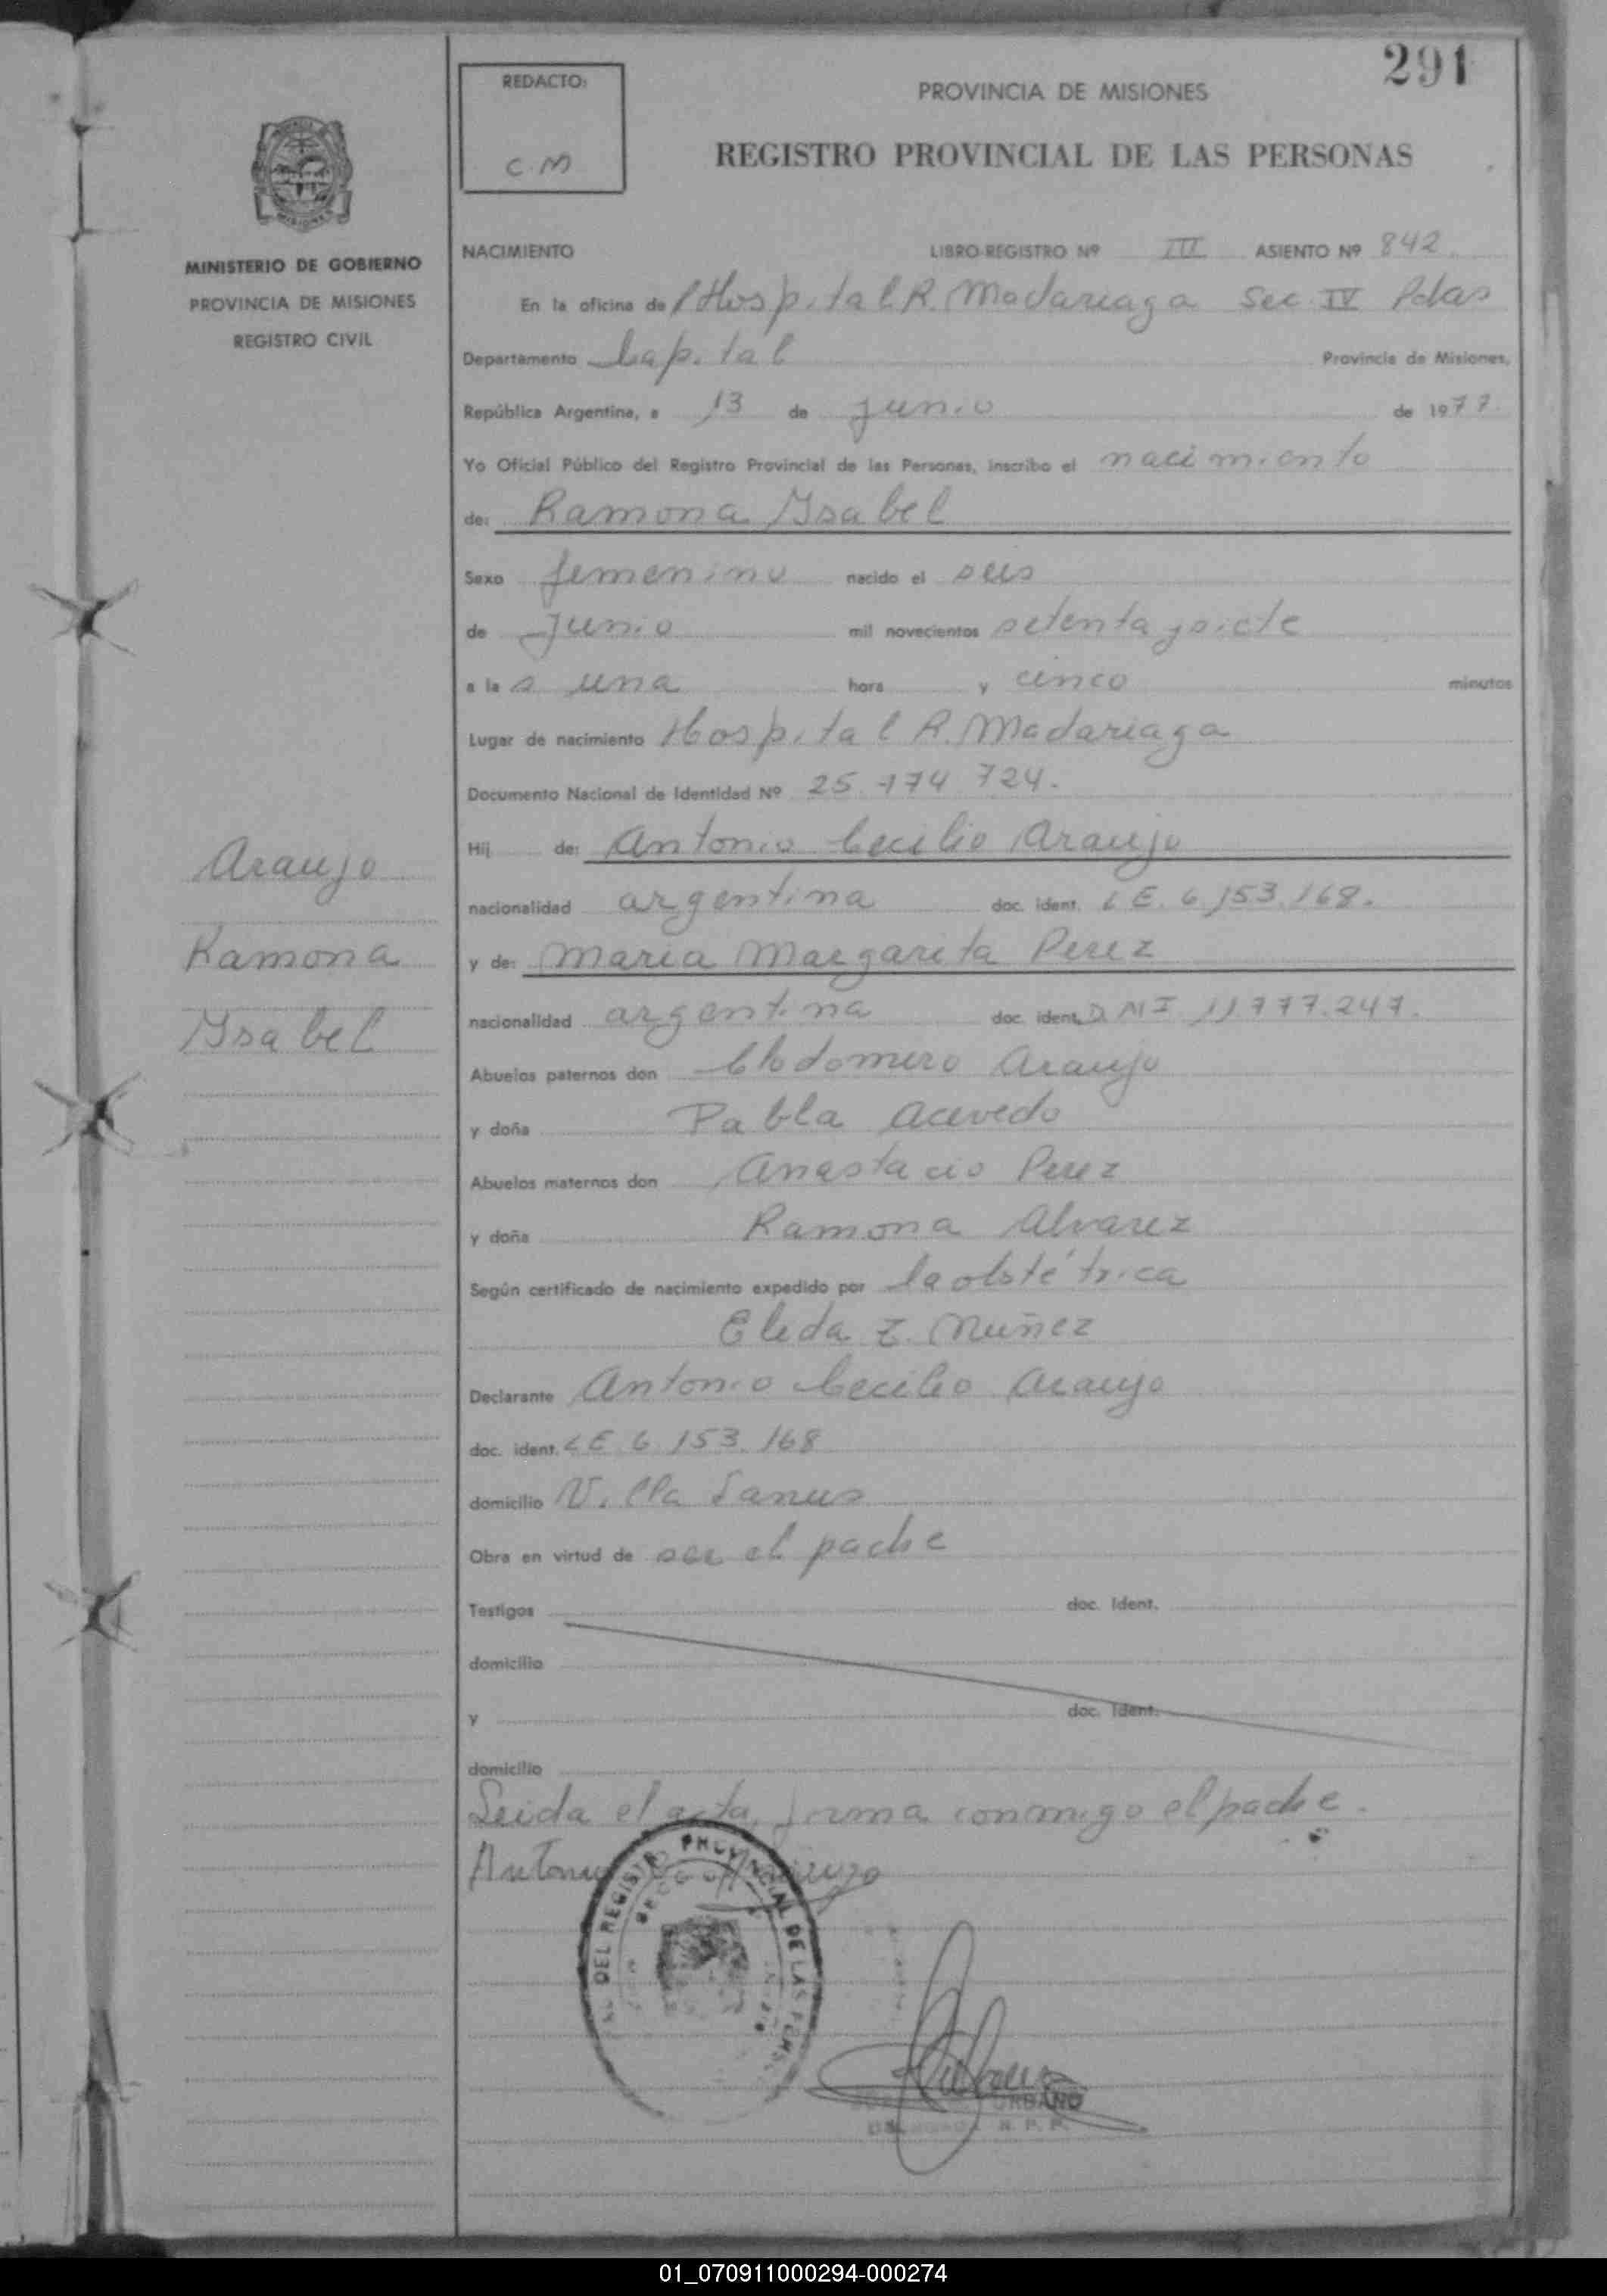 291
REDACTO:
C.M
PROVINCIA DE MISIONES
REGISTRO PROVINCIAL DE LAS PERSONAS
MINISTERIO DE GOBIERNO
PROVINCIA DE MISIONES
REGISTRO CIVIL
NACIMIENTO LIBRO-REGISTRO Nº III ASIENTO Nº 842
En la oficina de Hospital R. Madariaga Sec. IV Pdas
Departamento Capital Provincia de Misiones,
República Argentina, a 13 de junio de 1977.
Yo Oficial Público del Registro Provincial de las Personas, inscribo el nacimiento
de: Ramona Ysabel
Sexo femenino nacido el seis
de Junio mil novecientos setenta y siete
a la s una hora y cinco minutos
Lugar de nacimiento Hospital R. Madariaga
Documento Nacional de Identidad Nº 25.174 724.
Hij de: Antonio Cecilio Araujo
nacionalidad argentina doc. ident. L E. 6.153.168.
y de: Maria Margarita Perez
nacionalidad argentina doc. ident. D.N I 11.777.247.
Abuelos paternos don Clodomiro Araujo
y doña Pabla Acevedo
Abuelos maternos don Anastacio Perez
y doña Ramona Alvarez
Según certificado de nacimiento expedido por la obstétrica
Eleda Z. Nuñez
Declarante Antonio Cecilio Araujo
doc. ident. L E 6.153.168
domicilio Villa Lanus
Obra en virtud de ser el padre
Testigos doc. Ident.
domicilio
y doc. Ident.
domicilio
Leida el acta, firma conmigo el padre.
Antonio Araujo
DEL REGISTRO PROVINCIAL DE LAS PERS
URBANO
R. P. P.
Araujo
Ramona
Ysabel
01_070911000294-000274